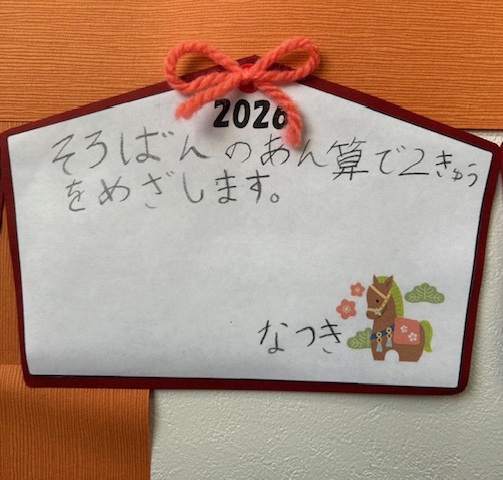 2026
そろばんのあん算で2きゅう
をめざします。
なつき